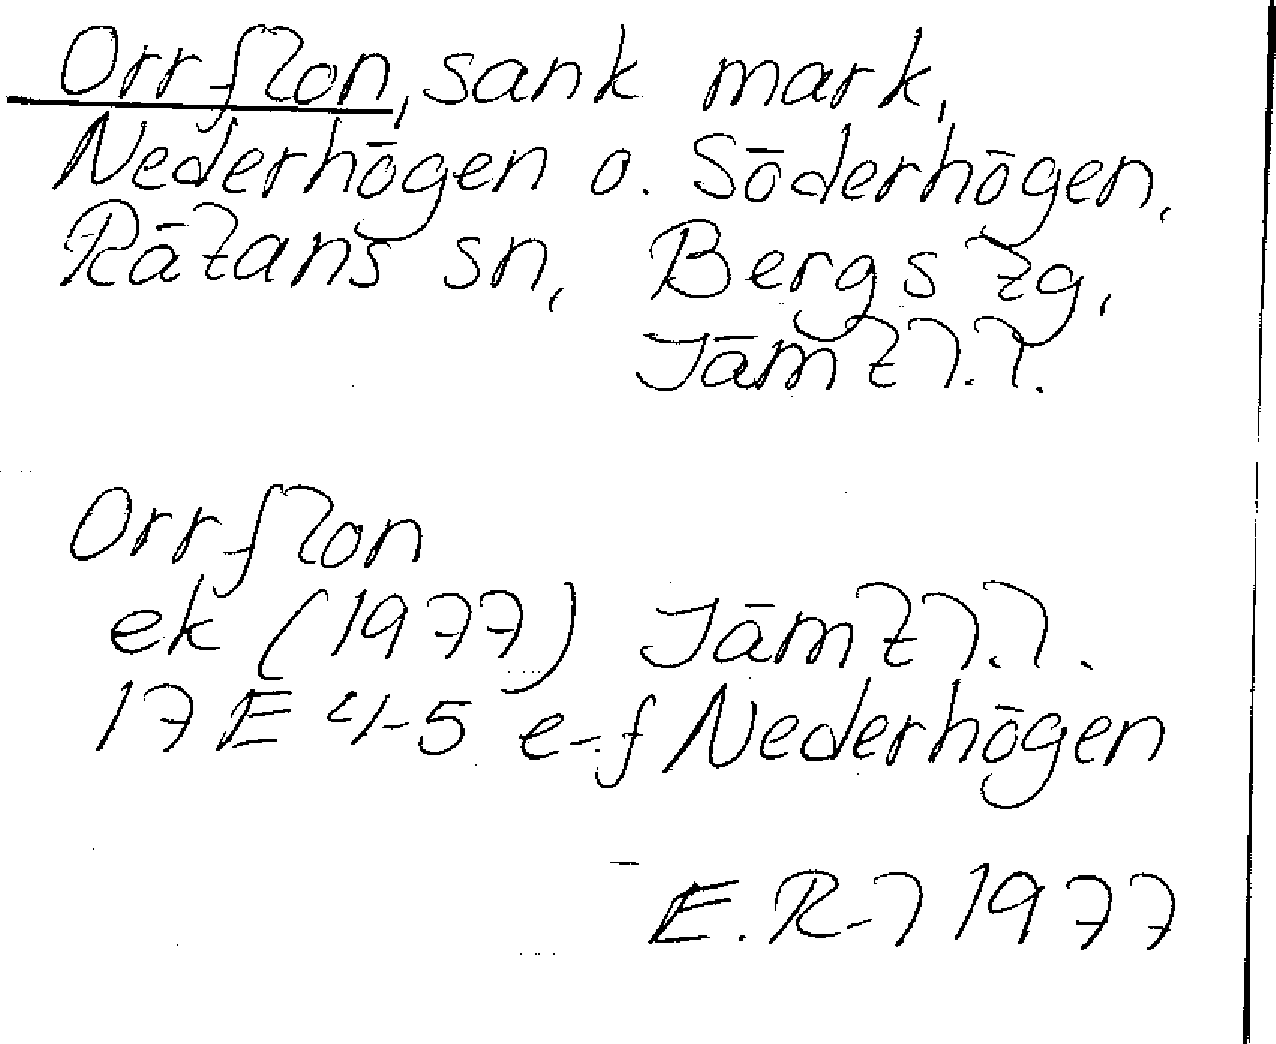 Orrflon, sank mark,
Nederhögen o. Söderhögen,
Rätans sn, Bergs tg,
Jämtl.l.
Orrflon
ek (1977) Jämtl.l.
17E 4-5 e-f Nederhögen
E.R-l 1977